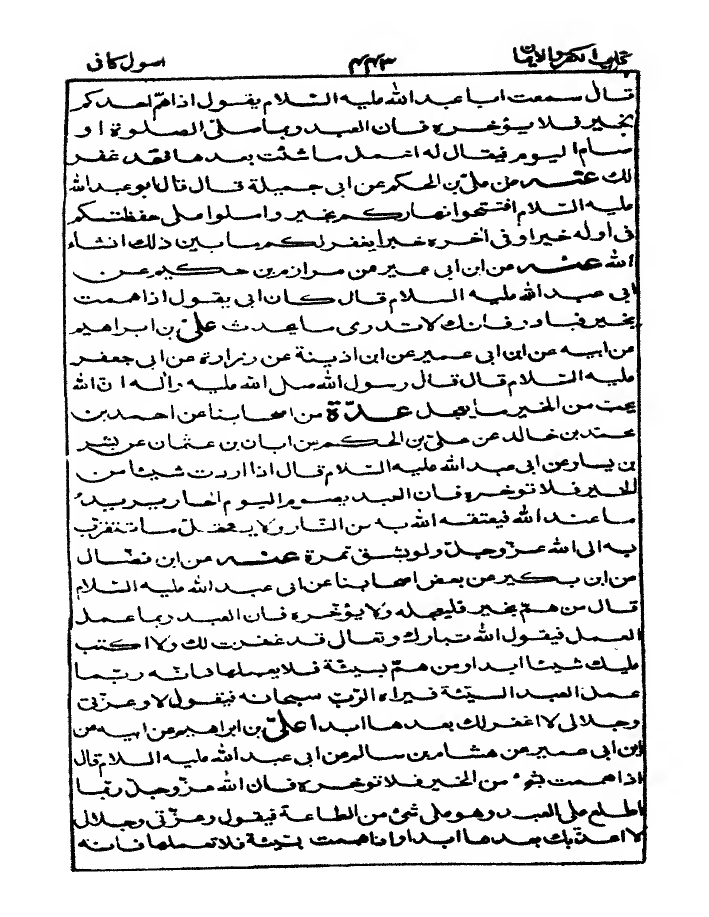 كتاب الكفر والايمان ۴۴۳ اسول كافى
قال سمعت ابا عبد الله عليه السّلام يقول اذا همّ احدكم
بخير فلا يؤخره فان العبد ربما صلّى الصلوة او
صام اليوم فيقال له اعمل ما شئت بعدها فقد غفر
لك عنه عن علىّ بن الحكم عن ابى جميلة قال قال ابو عبد الله
عليه السّلام افتتحوا نهاركم بخير واملوا على حفظتكم
فى اوله خيرا وفى اخره خيرا يغفر لكم ما بين ذلك انشاء
الله عنه عن ابن ابى عمير عن مرازم بن حكيم عن
ابى عبد الله عليه السلام قال كان ابى يقول اذا هممت
بخير فبادر فانك لا تدرى ما يحدث علىّ بن ابراهيم
عن ابيه عن ابن ابى عمير عن ابن اذينة عن زرارة عن ابى جعفر
عليه السّلام قال قال رسول الله صلى الله عليه واله انّ الله
يحبّ من الخير ما يعجل عدّة من اصحابنا عن احمد بن
محمّد بن خالد عن علىّ بن الحكم عن ابان بن عثمان عن بشر
بن يسار عن ابى عبد الله عليه السّلام قال اذا اردت شيئا من
الخير فلا توخره فان العبد يصوم اليوم الحار يريد
ما عند الله فيعتقه الله به من النّار ولا يستقلّ ما تتقرّب
به الى الله عزّ وجلّ ولو بشق تمرة عنه عن ابن فضّال
عن ابن بكير عن بعض اصحابنا عن ابى عبد الله عليه السّلام
قال من همّ بخير فليعجله ولا يؤخّره فان العبد ربما عمل
العمل فيقول الله تبارك وتعالى قد غفرت لك ولا اكتب
عليك شيئا ابدا ومن همّ بسيّئة فلا يعملها فانّه ربّما
عمل العبد السيّئة فيراه الرّبّ سبحانه فيقول لا وعزّتى
وجلالى لا اغفر لك بعدها ابدا علىّ بن ابراهيم عن ابيه عن
ابن ابى عمير عن هشام بن سالم عن ابى عبد الله عليه السلام قال
اذا هممت بشىء من الخير فلا توخره فان الله عزّ وجلّ ربّما
اطلع على العبد وهو على شئ من الطاعة فيقول وعزّتى وجلالى
لا اعذّبك بعدها ابدا واذا هممت بسيّئة فلا تعملها فانه